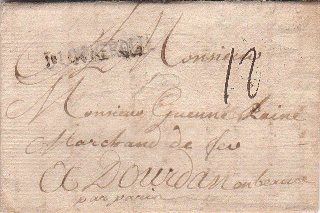 A Monsieur
Monsieur Guenne Lainé
Marchand de fer
A Dourdan en beauce
par paris